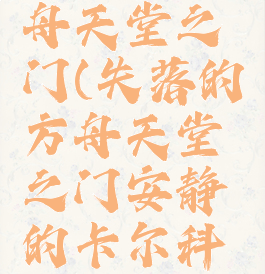 舟天堂之
门(失落的
方舟天堂
之门安静
的卡尔科